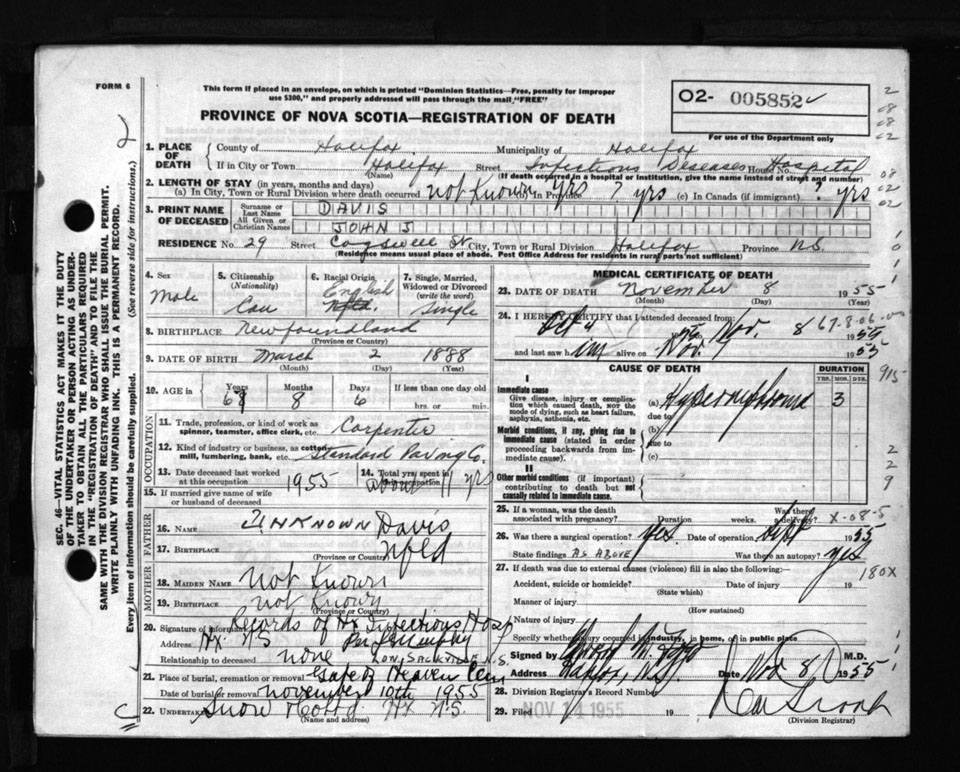 FORM 6
This form if placed in an envelope, on which is printed "Dominion Statistics—Free, penalty for improper
use $300," and properly addressed will pass through the mail "FREE"
PROVINCE OF NOVA SCOTIA—REGISTRATION OF DEATH
O2- 005852
For use of the Department only
1. PLACE OF DEATH County of Halifax Municipality of Halifax
If in City or Town Halifax Street Infectious Diseases Hospital House No.
(Name) (If death occurred in a hospital or institution, give the name instead of street and number)
2. LENGTH OF STAY (in years, months and days)
(a) In City, Town or Rural Division where death occurred not Known (b) In Province yrs ? yrs (c) In Canada (if immigrant) ? yrs
3. PRINT NAME OF DECEASED Surname or Last Name DAVIS
All Given or Christian Names JOHN J
RESIDENCE No. 29 Street Cogswell St City, Town or Rural Division Halifax Province N.S.
(Residence means usual place of abode. Post Office Address for residents in rural parts not sufficient)
4. Sex Male
5. Citizenship (Nationality) Can
6. Racial Origin English
7. Single, Married, Widowed or Divorced (write the word) Single
8. BIRTHPLACE Newfoundland
(Province or Country)
9. DATE OF BIRTH March 2 1888
(Month) (Day) (Year)
10. AGE in Years 67 Months 8 Days 6 If less than one day old hrs. or min.
OCCUPATION
11. Trade, profession, or kind of work as spinner, teamster, office clerk, etc. Carpenter
12. Kind of industry or business, as cotton mill, lumbering, bank, etc. Standard Paving Co.
13. Date deceased last worked at this occupation 1955
14. Total yrs. spent in occupation about 11 yrs
15. If married give name of wife or husband of deceased
FATHER
16. NAME UNKNOWN Davis
17. BIRTHPLACE Nfld
(Province or Country)
MOTHER
18. MAIDEN NAME not Known
19. BIRTHPLACE not Known
(Province or Country)
20. Signature of informant Records of Hx Infectious Hosp
Address Hx NS Per Murphy
Relationship to deceased none LOW. SACKVILLE N.S.
21. Place of burial, cremation or removal Gate of Heaven Cem
Date of burial or removal november 10th 1955
22. Undertaker Snow Hx NS.
(Name and address)
MEDICAL CERTIFICATE OF DEATH
23. DATE OF DEATH November 8 1955
(Month) (Day) (Year)
24. I HEREBY CERTIFY that I attended deceased from:
Nov. 8 1955
and last saw him alive on Nov. 1955
CAUSE OF DEATH
DURATION
YRS. MOS. DYS.
I
Immediate cause
Give disease, injury or complication which caused death, not the mode of dying, such as heart failure, asphyxia, asthenia, etc.
(a) Hypernephroma 3
due to
Morbid conditions, if any, giving rise to immediate cause (stated in order proceeding backwards from immediate cause).
(b)
due to
(c)
II
Other morbid conditions (if important) contributing to death but not causally related to immediate cause.
25. If a woman, was the death associated with pregnancy? Duration weeks. Was there a delivery?
26. Was there a surgical operation? yes. Date of operation Sept 1955
State findings AS ABOVE Was there an autopsy? yes
27. If death was due to external causes (violence) fill in also the following:—
Accident, suicide or homicide? Date of injury 19
(State which)
Manner of injury
(How sustained)
Nature of injury
Specify whether injury occurred in industry, in home, or in public place
Signed by M.D.
Address Halifax, N.S. Date Nov 8 1955
28. Division Registrar's Record Number
29. Filed NOV 14 1955 19
(Division Registrar)
SEC. 46—VITAL STATISTICS ACT MAKES IT THE DUTY
OF THE UNDERTAKER OR PERSON ACTING AS UNDERTAKER
TO OBTAIN ALL THE PARTICULARS REQUIRED
IN THE "REGISTRATION OF DEATH" AND TO FILE THE
SAME WITH THE DIVISION REGISTRAR WHO SHALL ISSUE THE BURIAL PERMIT.
WRITE PLAINLY WITH UNFADING INK. THIS IS A PERMANENT RECORD.
Every item of information should be carefully supplied. (See reverse side for instructions.)
2
08
02
08
02
02
1
0
1
67-8-06
915
2
2
9
X-08-5
180X